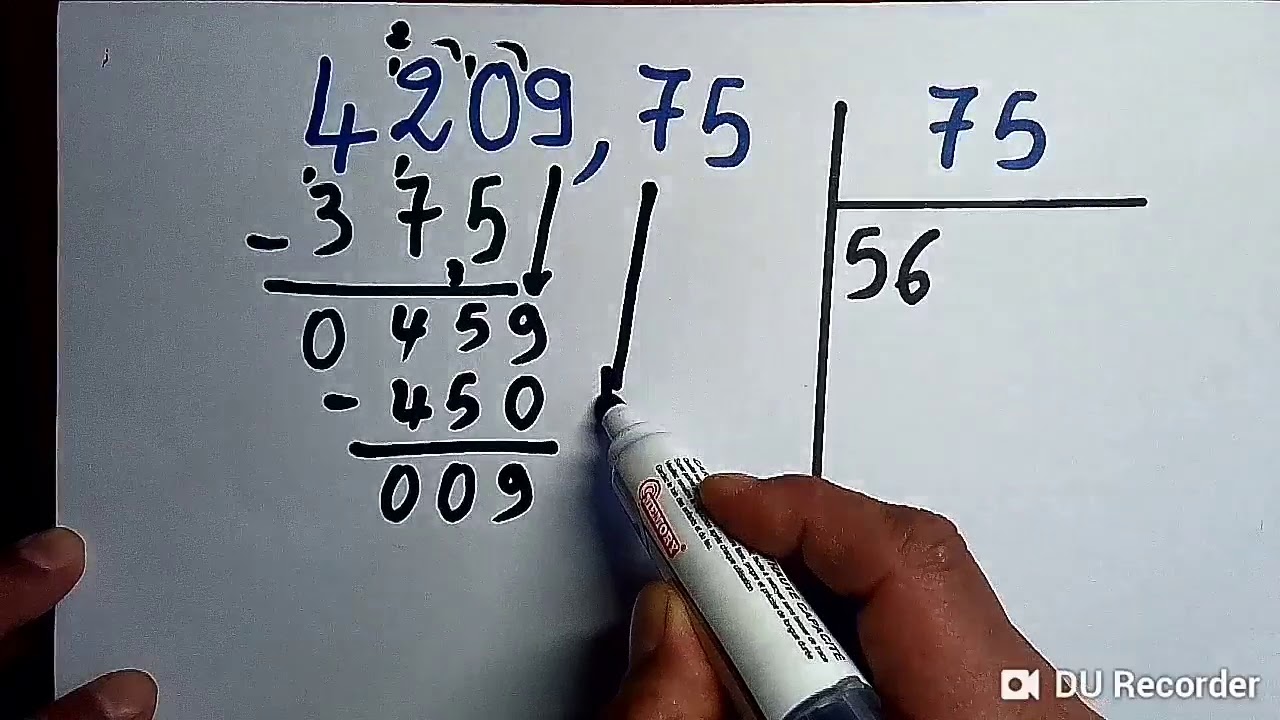 4209,75
75
- 375
56
0459
- 450
009
DU Recorder